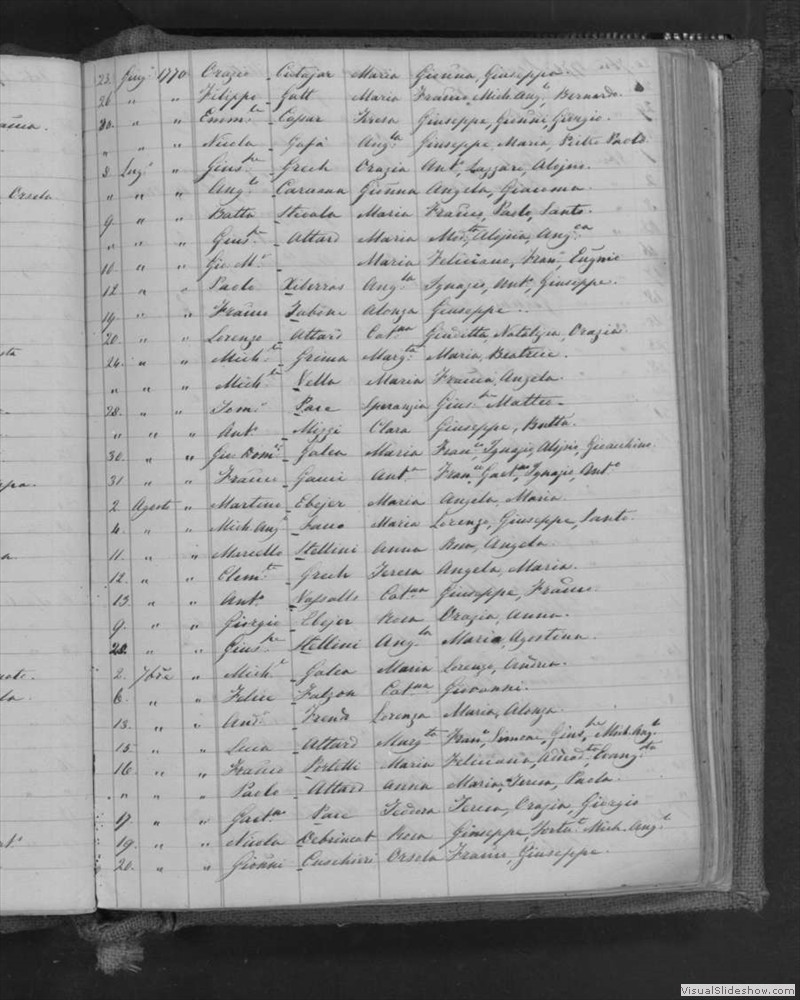 23. Giug. 1770 Orazio Cutajar Maria Gioûna, Giuseppa.
26 " " Filippo Gatt Maria Franco, Mich.Ang. Bernardo.
30. " " Emm. Caţar Teresa Giuseppe, Gionni, Giorgio.
" " " Nicola Gafà Ang.ta Giuseppe, Maria, Pietro Paolo
8 Lug. " Gius.pe Grech Orazia Ant., Lazzaro, Alojsio.
" " " Ang.lo Caruana Gioûna Angela, Giacoma.
9 " " Batta Sticala Maria Franco, Paolo, Santo.
" " " Gius. Attard Maria Mod.ta, Alojsia, Ang.ca
10. " " Gio M. Maria Feliciano, Fran. Eugenio
12 " " Paolo Xiberras Ang.la Ignazio, Ant., Giuseppe.
19. " " Franco Tabone Alonza Giuseppe.
20. " " Lorenzo Attard Cat.na Giuditta, Natalizia, Orazia
24. " " Mich. Grima Marg.ta Maria, Beatrice.
" " " Mich. Vella Maria Franca, Angela.
28. " " Tom. Pace Speranzia Gius. Matteo
" " " Ant. Mizzi Clara Giuseppe, Batta.
30. " " Gio Dom. Galea Maria Fran. Ignazio, Alojsio, Gioacchino.
31. " " Franco Gauci Ant. Fran. Gaet. Ignazio, Ant.
2. Agosto " Martino Ebejer Maria Angela, Maria.
4. " " Mich Ang. Fava Maria Lorenzo, Giuseppe, Santo.
11. " " Marcello Stellini Anna Rosa, Angela
12. " " Clem. Grech Teresa Angela, Maria.
13. " " Ant. Vassallo Cat.na Giuseppe, Franco.
9. " " Giorgio Ebejer Rosa Orazia, Anna.
28. " " Gius.pe Stellini Ang.la Maria, Agostina.
2. 7bre " Mich. Galea Maria Lorenzo, Andrea.
6. " " Felice Falzon Cat.na Giovanni.
13. " " And. Frendo Lorenza Maria, Alonza.
15. " " Luca Attard Marg.ta Fran., Simone, Gius., Mich.Ang.
16. " " Franco Portelli Maria Feliciana, Evang.ta
" " " Paolo Attard Anna Maria, Teresa, Paola.
17. " " Gaet.no Pace Tedora Teresa, Orazia, Giorgio
19. " " Nicola Debrincat Rosa Giuseppe, Fortu. Mich.Ang.
20. " " Gionni Cuschieri Orsola Franco, Giuseppe.
VisualSlideshow.com